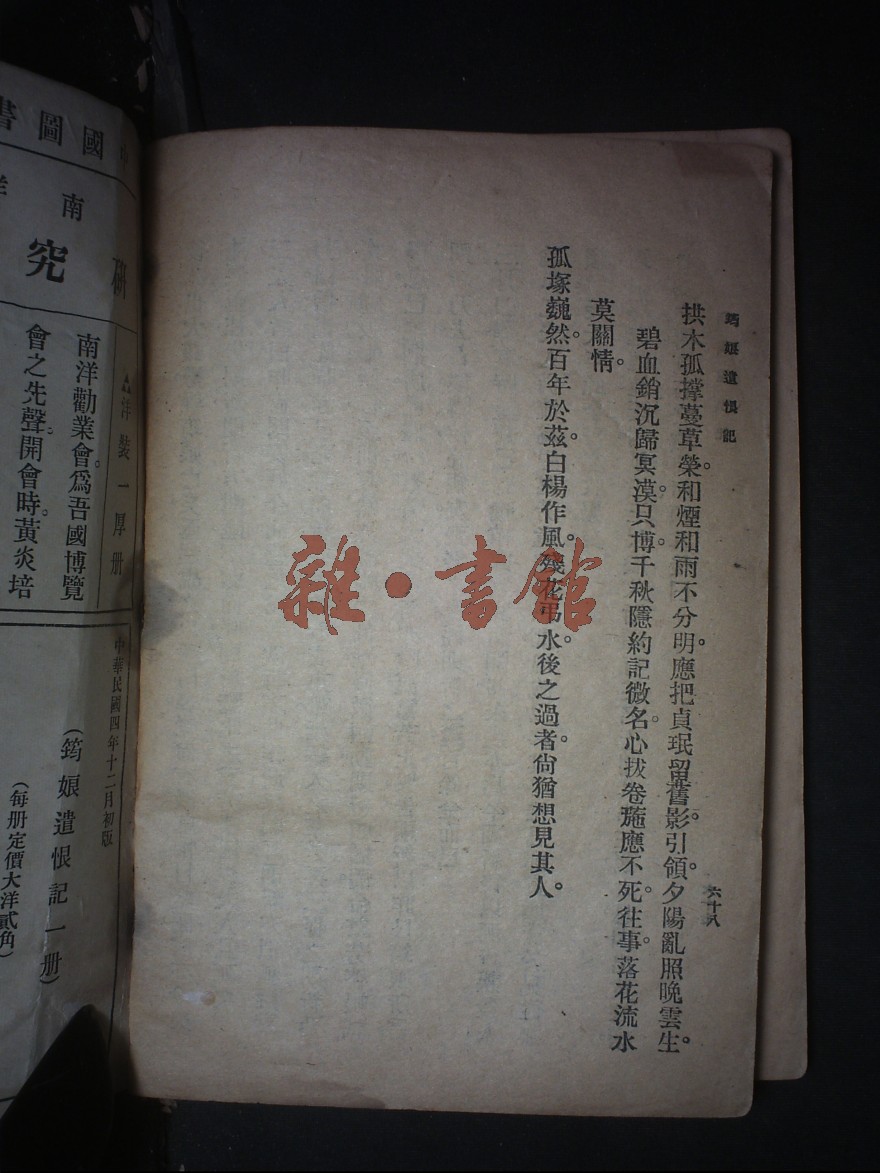 筠娘遺恨記
六十八
拱木孤撐蔓草榮。和煙和雨不分明。應把貞珉留舊影。引領夕陽亂照晚雲生。
碧血銷沉歸冥漠。只博千秋隱約記微名。心拔卷葹應不死。往事落花流水
莫關情。
孤塚巍然。百年於茲。白楊作風。殘花弔水。後之過者。尙猶想見其人。
雜·書館
國圖書
南洋
研究
△洋裝一厚册
南洋勸業會。爲吾國博覽
會之先聲。開會時。黃炎培
中華民國四年十二月初版
(筠娘遺恨記一册)
(每册定價大洋貳角)